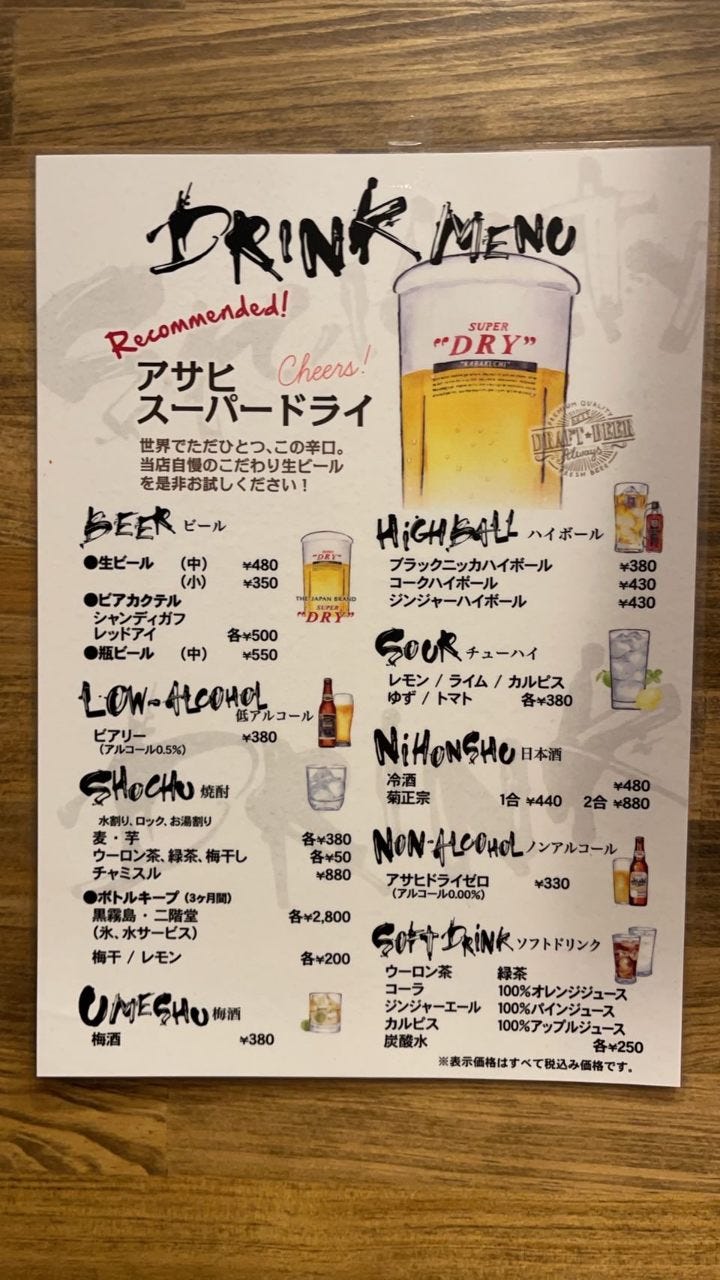 DRINK MENU
Recommended!
Cheers!
アサヒ
スーパードライ
世界でただひとつ、この辛口。
当店自慢のこだわり生ビール
を是非お試しください！
SUPER
"DRY"
"KARAKUCHI"
PREMIUM QUALITY
DRAFT★BEER
Always
FRESH BEER
BEER ビール
●生ビール （中） ¥480
（小） ¥350
●ビアカクテル
シャンディガフ
レッドアイ 各¥500
●瓶ビール （中） ¥550
"DRY"
THE JAPAN BRAND
SUPER
"DRY"
LOW-ALCOHOL
低アルコール
ビアリー ¥380
（アルコール0.5%）
SHOCHU 焼酎
水割り、ロック、お湯割り
麦・芋 各¥380
ウーロン茶、緑茶、梅干し 各¥50
チャミスル ¥880
●ボトルキープ（3ヶ月間）
黒霧島・二階堂 各¥2,800
（氷、水サービス）
梅干 / レモン 各¥200
UMESHU 梅酒
梅酒 ¥380
HIGHBALL ハイボール
ブラックニッカハイボール ¥380
コークハイボール ¥430
ジンジャーハイボール ¥430
SOUR チューハイ
レモン / ライム / カルピス
ゆず / トマト 各¥380
NIHONSHU 日本酒
冷酒 ¥480
菊正宗 1合 ¥440 2合 ¥880
NON-ALCOHOL ノンアルコール
アサヒドライゼロ ¥330
（アルコール0.00%）
SOFT DRINK ソフトドリンク
ウーロン茶 緑茶
コーラ 100%オレンジジュース
ジンジャーエール 100%パインジュース
カルピス 100%アップルジュース
炭酸水 各¥250
※表示価格はすべて税込み価格です。